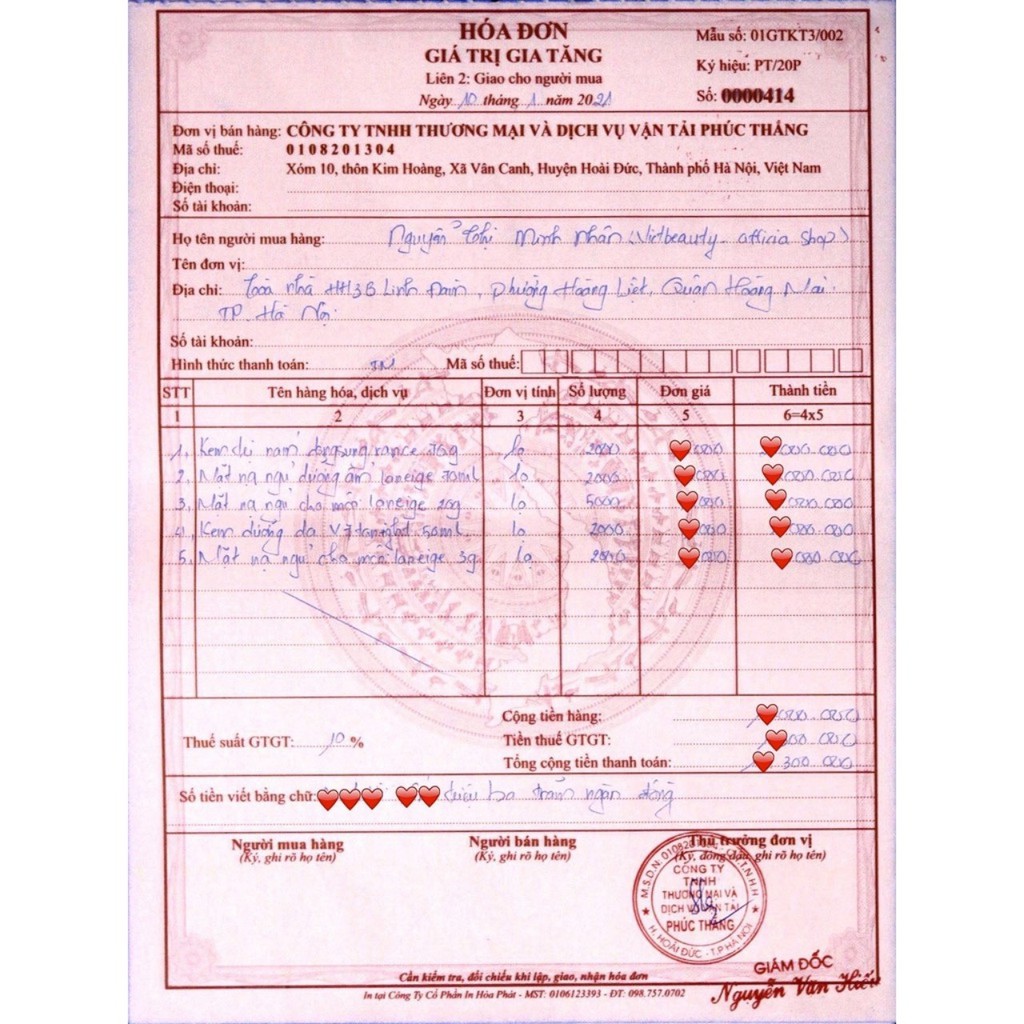 HÓA ĐƠN
GIÁ TRỊ GIA TĂNG
Liên 2: Giao cho người mua
Ngày 10 tháng 1 năm 2021
Mẫu số: 01GTKT3/002
Ký hiệu: PT/20P
Số: 0000414
Đơn vị bán hàng: CÔNG TY TNHH THƯƠNG MẠI VÀ DỊCH VỤ VẬN TẢI PHÚC THẮNG
Mã số thuế: 0108201304
Địa chỉ: Xóm 10, thôn Kim Hoàng, Xã Vân Canh, Huyện Hoài Đức, Thành phố Hà Nội, Việt Nam
Điện thoại:
Số tài khoản:
Họ tên người mua hàng: Nguyễn Thị Minh Nhân (Vietbeauty - officia shop)
Tên đơn vị:
Địa chỉ: Toà nhà HH3B Linh Đàm, Phường Hoàng Liệt, Quận Hoàng Mai
TP. Hà Nội.
Số tài khoản:
Hình thức thanh toán: Mã số thuế:
STT Tên hàng hóa, dịch vụ Đơn vị tính Số lượng Đơn giá Thành tiền
1 2 3 4 5 6=4x5
1. Kem trị nám dongsung rance lọ 2000 000 000.000
2. Mặt nạ ngủ dưỡng ẩm laneige 70ml lọ 2000 000 000.000
3. Mặt nạ ngủ cho môi laneige 20g lọ 5000 000 000.000
4. Kem dưỡng da V7 50ml lọ 2000 000 000.000
5. Mặt nạ ngủ cho môi laneige 3g lọ 000 000.000
Cộng tiền hàng: 000.000
Thuế suất GTGT: 10 % Tiền thuế GTGT: 00.000
Tổng cộng tiền thanh toán: 300.000
Số tiền viết bằng chữ: triệu ba trăm ngàn đồng
Người mua hàng Người bán hàng Thủ trưởng đơn vị
(Ký, ghi rõ họ tên) (Ký, ghi rõ họ tên) (Ký, đóng dấu, ghi rõ họ tên)
CÔNG TY
TNHH
THƯƠNG MẠI VÀ
DỊCH VỤ VẬN TẢI
PHÚC THẮNG
H. HOÀI ĐỨC - T.P HÀ NỘI
GIÁM ĐỐC
Nguyễn Văn Hiếu
Cần kiểm tra, đối chiếu khi lập, giao, nhận hóa đơn
In tại Công Ty Cổ Phần In Hòa Phát - MST: 0106123393 - ĐT: 098.757.0702